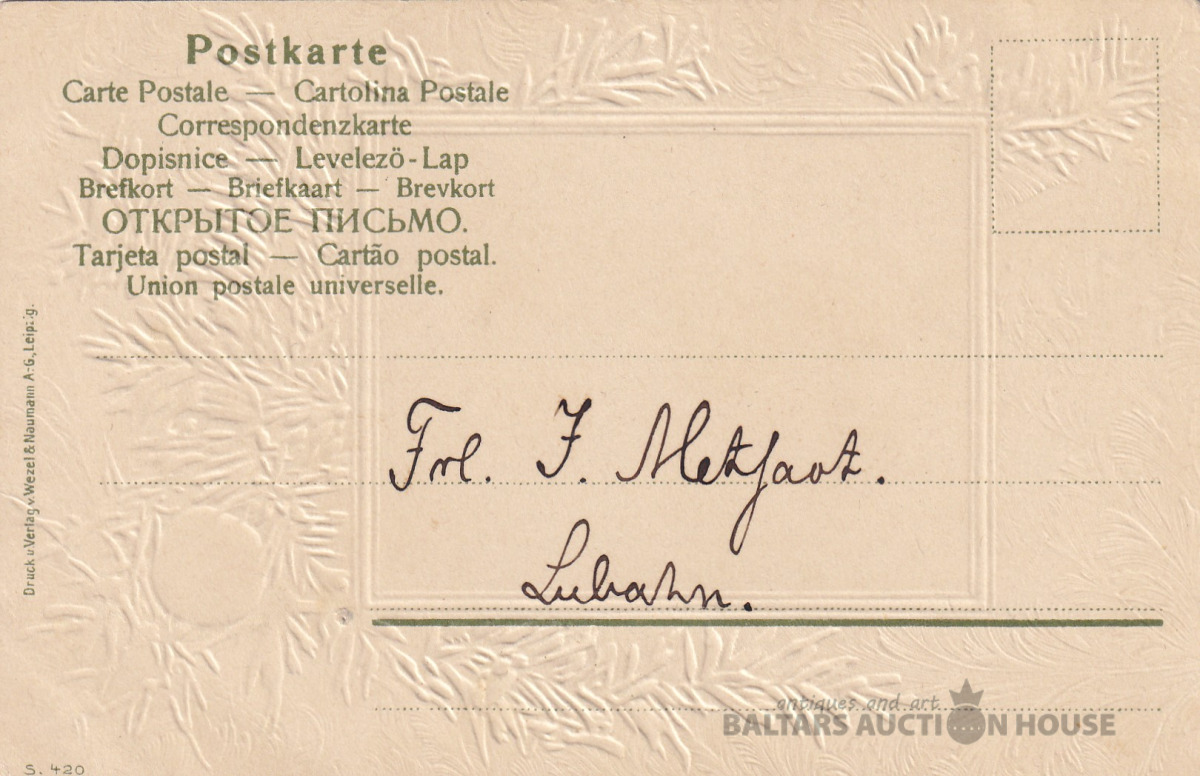 Postkarte
Carte Postale — Cartolina Postale
Correspondenzkarte
Dopisnice — Levelezö-Lap
Brefkort — Briefkaart — Brevkort
ОТКРЫТОЕ ПИСЬМО.
Tarjeta postal — Cartão postal.
Union postale universelle.
Druck u Verlag v. Wezel & Naumann A:G., Leipzig.
Frl. J.
Lubahn.
antiques and art
BALTARS AUCTION HOUSE
S. 420